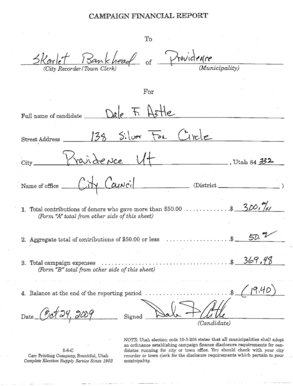 CAMPAIGN FINANCIAL REPORT
To
Skarlet Bankhead of Providence
(City Recorder/Town Clerk) (Municipality)
For
Full name of candidate Dale F. Astle
Street Address 138 Silver Fox Circle
City Providence Ut , Utah 84 332
Name of office City Council (District )
1. Total contributions of donors who gave more than $50.00 $ 300.
(Form "A" total from other side of this sheet)
2. Aggregate total of contributions of $50.00 or less $ 50.
3. Total campaign expenses $ 369.48
(Form "B" total from other side of this sheet)
4. Balance at the end of the reporting period $ (19.40)
Date Oct 24, 2009 Signed
(Candidate)
Carr Printing Company, Bountiful, Utah
Complete Election Supply Service Since
NOTE: Utah election code 10-3-208 states that all municipalities shall adopt
an ordinance establishing campaign finance disclosure requirements for can-
didates running for city or town office. You should check with your city
recorder or town clerk for the disclosure requirements which pertain to your
municipality.